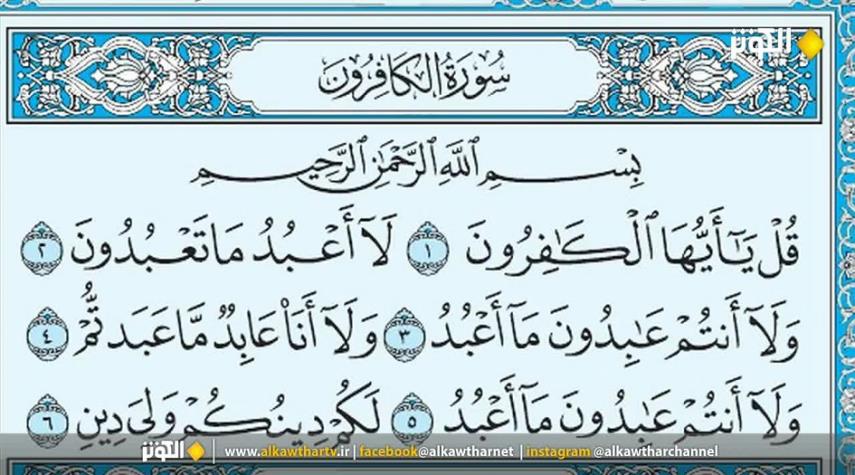 الكوثر
سُورَةُ الكَافِرُونَ
بِسْمِ اللَّهِ الرَّحْمَٰنِ الرَّحِيمِ
قُلْ يَٰٓأَيُّهَا ٱلْكَٰفِرُونَ ١ لَآ أَعْبُدُ مَا تَعْبُدُونَ ٢
وَلَآ أَنتُمْ عَٰبِدُونَ مَآ أَعْبُدُ ٣ وَلَآ أَنَا۠ عَابِدٌ مَّا عَبَدتُّمْ ٤
وَلَآ أَنتُمْ عَٰبِدُونَ مَآ أَعْبُدُ ٥ لَكُمْ دِينُكُمْ وَلِىَ دِينِ ٦
الكوثر www.alkawthartv.ir | facebook@alkawtharnet | instagram @alkawtharchannel